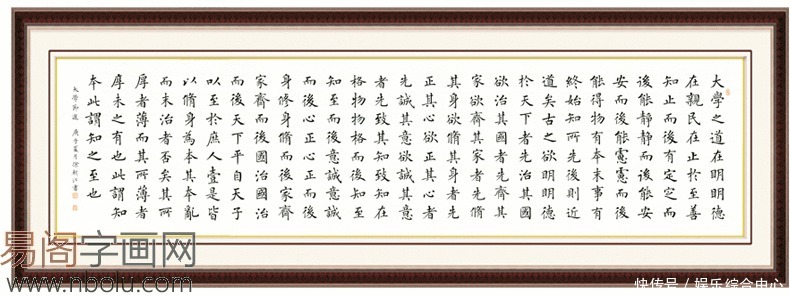 大學之道在明明德
在親民在止於至善
知止而後有定定而
後能靜靜而後能安
安而後能慮慮而後
能得物有本末事有
終始知所先後則近
道矣古之欲明明德
於天下者先治其國
欲治其國者先齊其
家欲齊其家者先脩
其身欲脩其身者先
正其心欲正其心者
先誠其意欲誠其意
者先致其知致知在
格物物格而後知至
知至而後意誠意誠
而後心正心正而後
身修身脩而後家齊
家齊而後國治國治
而後天下平自天子
以至於庶人壹是皆
以脩身為本其本亂
而末治者否矣其所
厚者薄而其所薄者
厚未之有也此謂知
本此謂知之至也
大學節選 庚子夏月徐新江書
易阁字画网
www.nbolu.com
快传号 / 娱乐综合中心